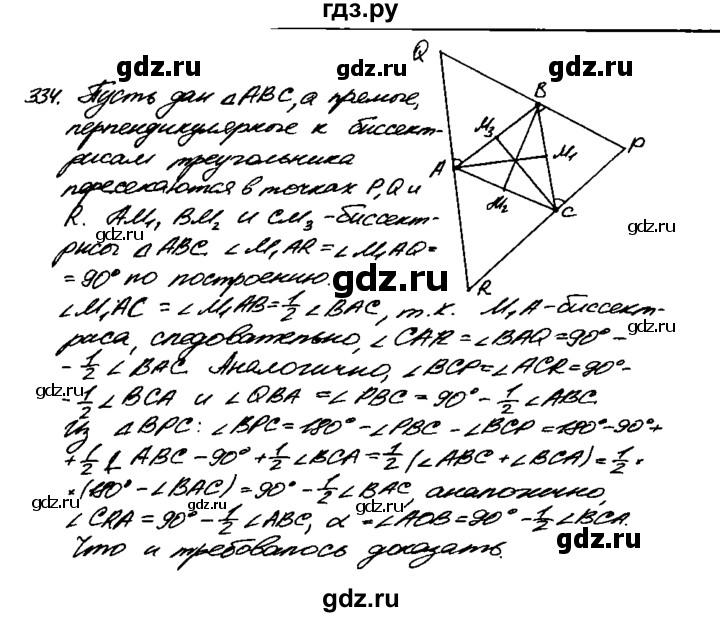 гдз.ру
gdz.ru gdz.ru gdz.ru
334. Пусть дан △ABC, а прямые,
перпендикулярные к биссект-
рисам треугольника
пересекаются в точках P, Q и
R. AM₁, BM₂ и CM₃ -биссект-
рисы △ABC. ∠M₁AR = ∠M₁AQ=
= 90° по построению.
∠M₁AC = ∠M₁AB = 1/2 ∠BAC, т.к. M₁A-биссект-
риса, следовательно, ∠CAR = ∠BAQ = 90° -
- 1/2 ∠BAC. Аналогично, ∠BCP = ∠ACR = 90° -
- 1/2 ∠BCA и ∠QBA = ∠PBC = 90° - 1/2 ∠ABC.
Из △BPC: ∠BPC = 180° - ∠PBC - ∠BCP = 180° - 90° +
+ 1/2 ∠ABC - 90° + 1/2 ∠BCA = 1/2 (∠ABC + ∠BCA) = 1/2 ×
× (180° - ∠BAC) = 90° - 1/2 ∠BAC, аналогично,
∠CRA = 90° - 1/2 ∠ABC, α = ∠AOB = 90° - 1/2 ∠BCA.
Что и требовалось доказать.
Q
B
M₃
P
A
M₁
M₂
C
R
gdz.ru gdz.ru
gdz.ru
gdz.ru gdz.ru
gdz.ru gdz.ru gdz.ru
gdz.ru
gdz.ru